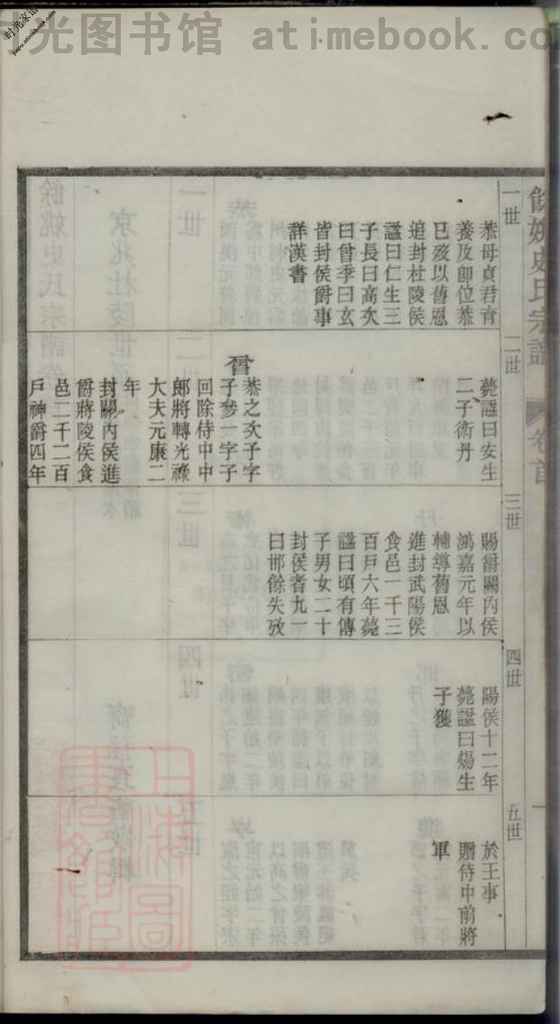 时光图书馆 atimebook.com
餘姚史氏宗譜
卷首
一世
恭母貞君育
養及即位恭
已歿以舊恩
追封杜陵侯
諡曰仁生三
子長曰高次
曰曾季曰玄
皆封侯爵事
詳漢書
二世
薨諡曰安生
二子術丹
曾
恭之次子字
子參一字子
回除侍中中
郎將轉光祿
大夫元康二
年
封關內侯進
爵將陵侯食
邑二千二百
戶神爵四年
三世
賜爵關內侯
鴻嘉元年以
輔導舊恩
進封武陽侯
食邑一千三
百戶六年薨
諡曰頃有傳
子男女二十
封侯者九一
曰邯餘失攷
四世
陽侯十二年
薨諡曰煬生
子獲
五世
於王事
贈侍中前將
軍